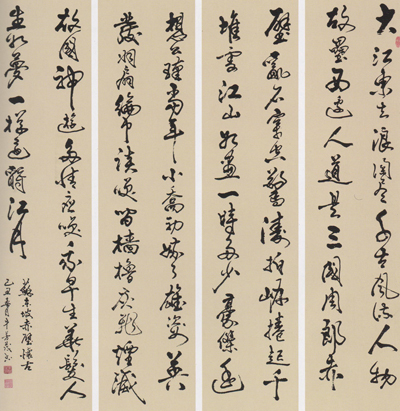 大江東去浪淘盡千古風流人物
故壘西邊人道是三國周郎赤
壁亂石穿空驚濤拍岸捲起千
堆雪江山如畫一時多少豪傑遥
想公瑾當年小喬初嫁了雄姿英
發羽扇綸巾談笑間檣櫓灰飛煙滅
故國神遊多情應笑我早生華髮人
生如夢一樽還酹江月
蘇東坡赤壁懷古
己丑春月